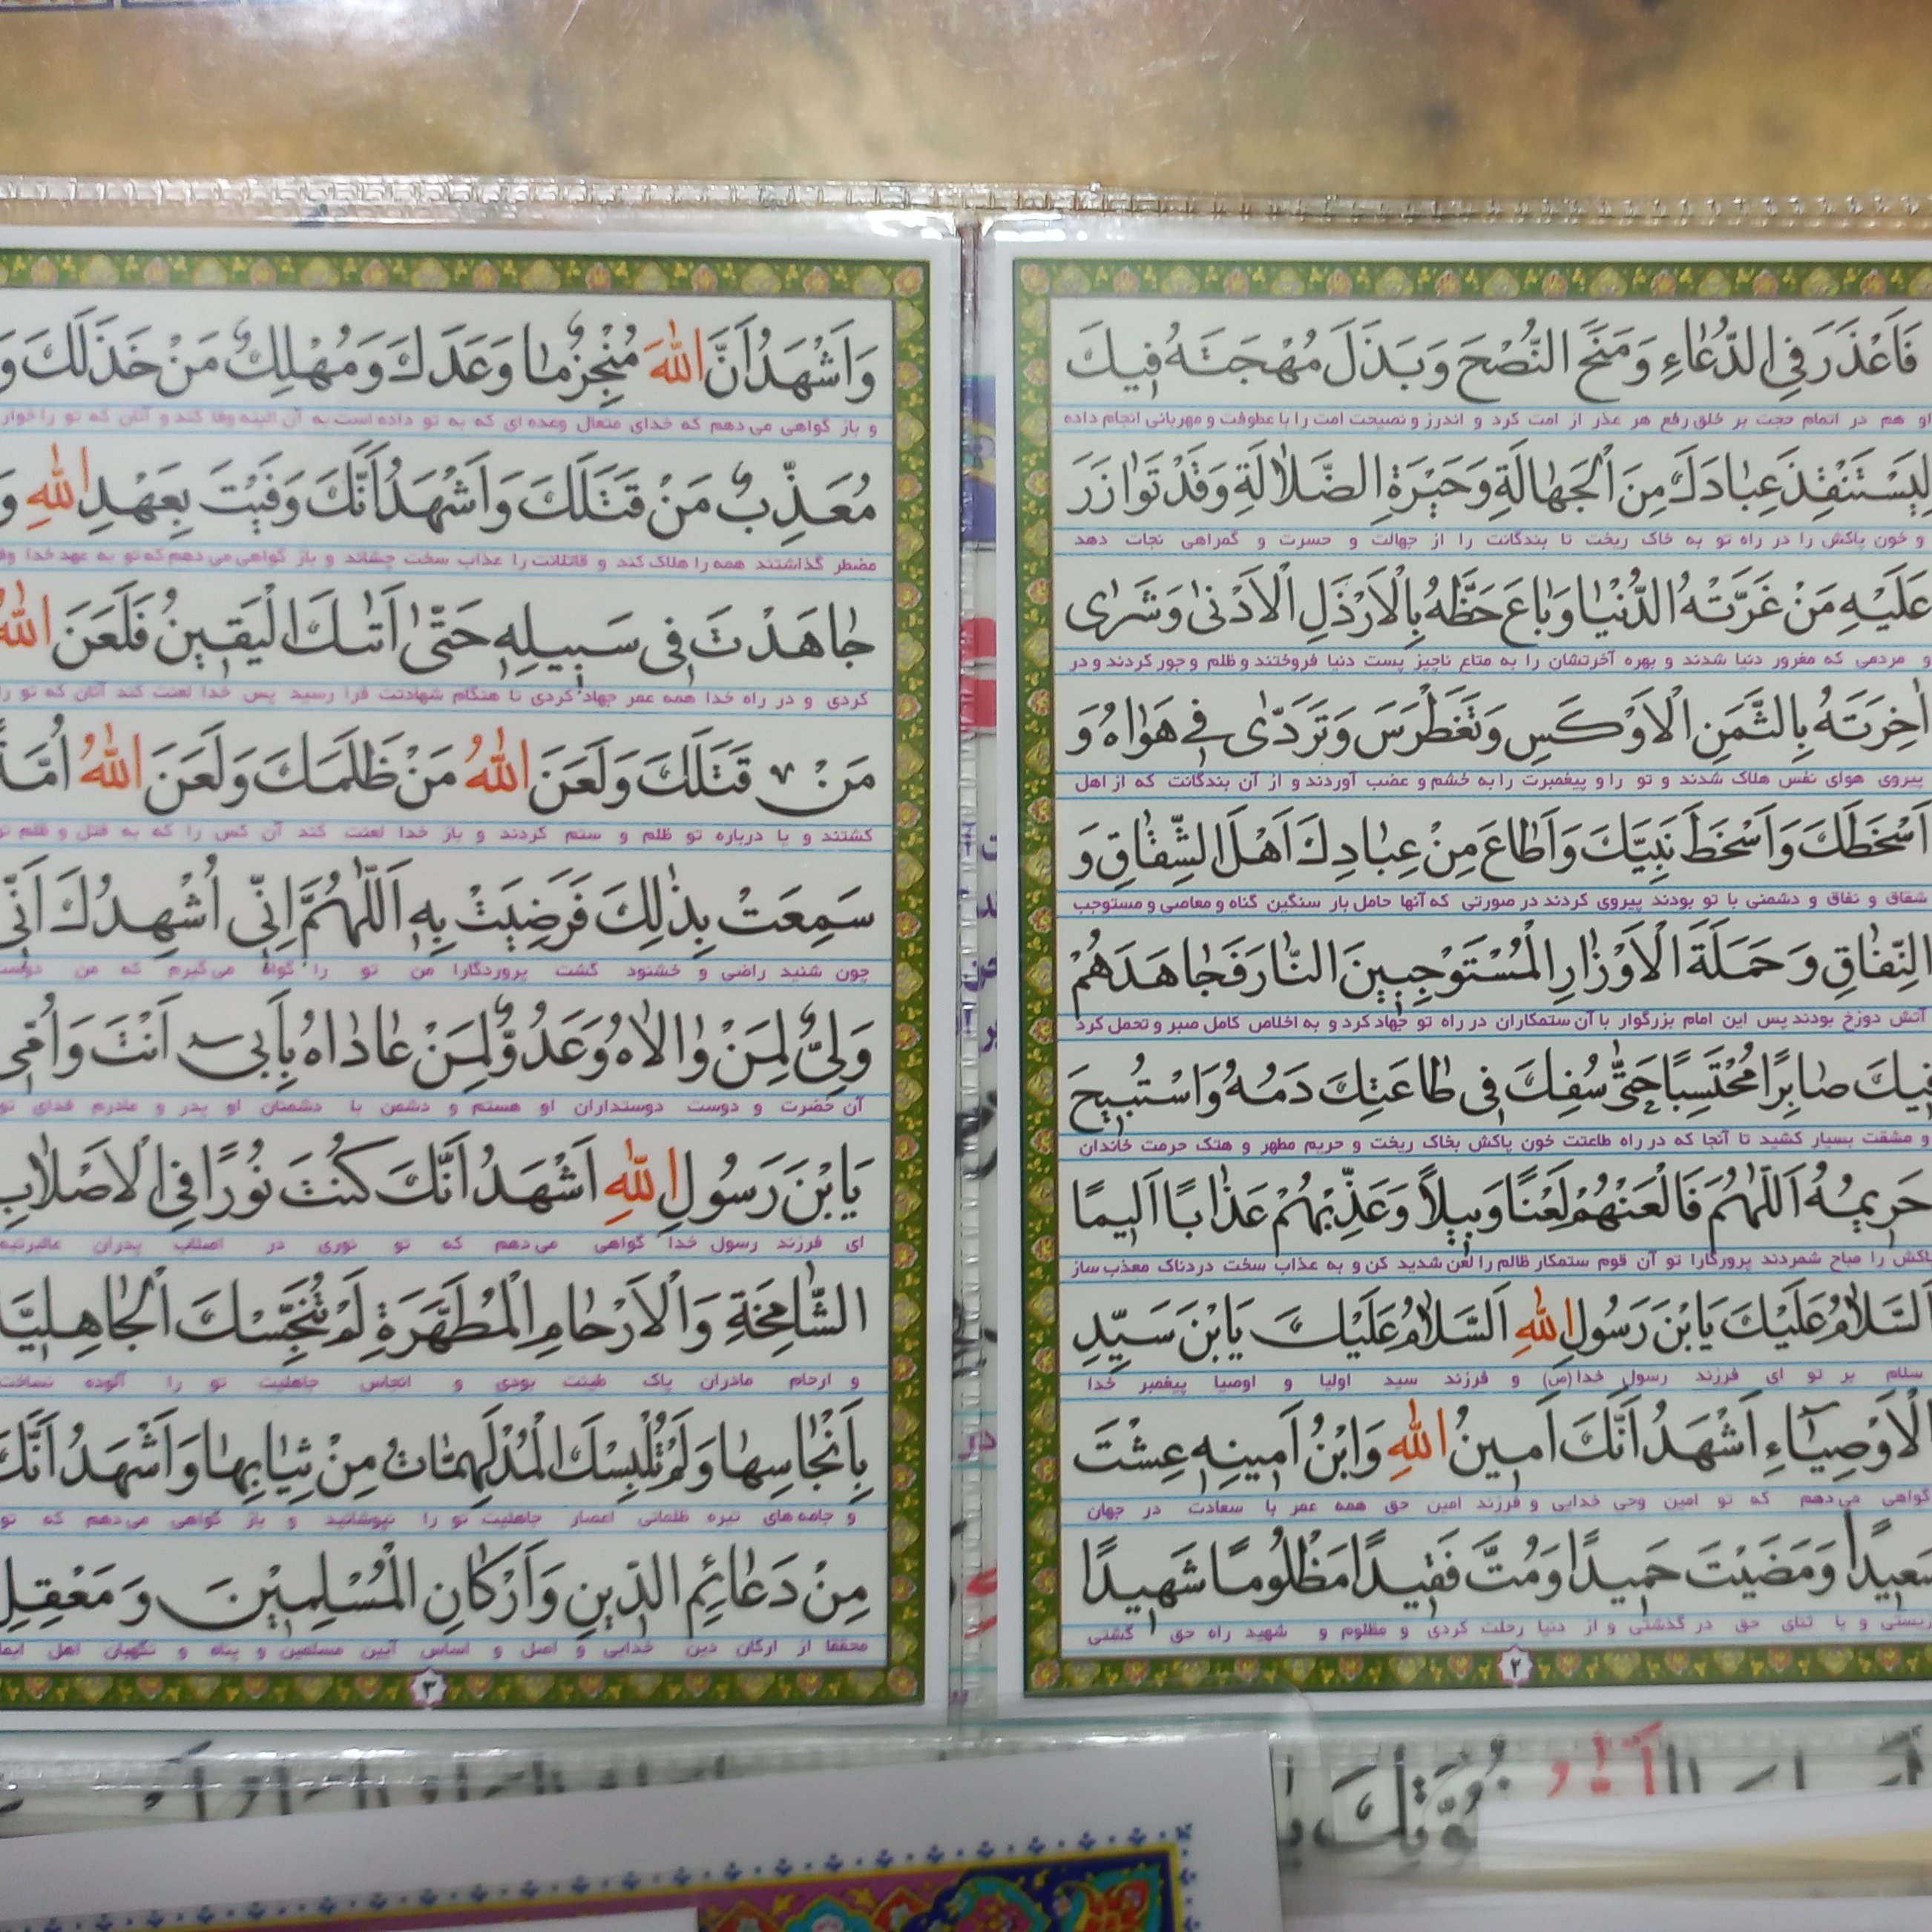 فَاَعْذَرَ فِی الدُّعٰاءِ وَمَنَحَ النُّصْحَ وَبَذَلَ مُهْجَتَهُ فیكَ
او هم در اتمام حجت بر خلق رفع هر عذر از امت کرد و اندرز و نصیحت امت را با عطوفت و مهربانی انجام داده
لِیَسْتَنْقِذَ عِبٰادَكَ مِنَ الْجَهٰالَةِ وَحَیْرَةِ الضَّلاٰلَةِ وَقَدْ تَوٰازَرَ
و خون پاکش را در راه تو به خاک ریخت تا بندگانت را از جهالت و حسرت و گمراهی نجات دهد
عَلَیْهِ مَنْ غَرَّتْهُ الدُّنْیٰا وَبٰاعَ حَظَّهُ بِالْاَرْذَلِ الْاَدْنیٰ وَشَریٰ
و مردمی که مغرور دنیا شدند و بهره آخرتشان را به متاع ناچیز پست دنیا فروختند و ظلم و جور کردند و در
اٰخِرَتَهُ بِالثَّمَنِ الْاَوْكَسِ وَتَغَطْرَسَ وَتَرَدّیٰ فی هَوٰاهُ وَ
پیروی هوای نفس هلاک شدند و تو را و پیغمبرت را به خشم و غضب آوردند و از آن بندگانت که از اهل
اَسْخَطَكَ وَاَسْخَطَ نَبِیَّكَ وَاَطٰاعَ مِنْ عِبٰادِكَ اَهْلَ الشِّقٰاقِ وَ
شقاق و نفاق و دشمنی با تو بودند پیروی کردند در صورتی که آنها حامل بار سنگین گناه و معاصی و مستوجب
النِّفٰاقِ وَحَمَلَةَ الْاَوْزٰارِ الْمُسْتَوْجِبینَ النّٰارَ فَجٰاهَدَهُمْ
آتش دوزخ بودند پس این امام بزرگوار با آن ستمکاران در راه تو جهاد کرد و به اخلاص کامل صبر و تحمل کرد
فیكَ صٰابِرًا مُحْتَسِبًا حَتّٰی سُفِكَ فی طٰاعَتِكَ دَمُهُ وَاسْتُبیحَ
و مشقت بسیار کشید تا آنجا که در راه طاعتت خون پاکش بخاک ریخت و حریم مطهر و هتک حرمت خاندان
حَریمُهُ اَللّٰهُمَّ فَالْعَنْهُمْ لَعْنًا وَبیلاً وَعَذِّبْهُمْ عَذٰابًا اَلیمًا
پاکش را مباح شمردند پرورگارا تو آن قوم ستمکار ظالم را لعن شدید کن و به عذاب سخت دردناک معذب ساز
اَلسَّلاٰمُ عَلَیْكَ یَابْنَ رَسُولِ اللّٰهِ اَلسَّلاٰمُ عَلَیْكَ یَابْنَ سَیِّدِ
سلام بر تو ای فرزند رسول خدا (ص) و فرزند سید اولیا و اوصیا پیغمبر خدا
الْاَوْصِیٰاءِ اَشْهَدُ اَنَّكَ اَمینُ اللّٰهِ وَابْنُ اَمینِهِ عِشْتَ
گواهی می‌دهم که تو امین وحی خدایی و فرزند امین حق همه عمر با سعادت در جهان
سَعیدًا وَمَضَیْتَ حَمیدًا وَمُتَّ فَقیدًا مَظْلُومًا شَهیدًا
زیستی و با ثنای حق در گذشتی و از دنیا رحلت کردی و مظلوم و شهید راه حق گشتی
۲
وَاَشْهَدُ اَنَّ اللّٰهَ مُنْجِزٌ مٰا وَعَدَكَ وَمُهْلِكٌ مَنْ خَذَلَكَ وَ
و باز گواهی می‌دهم که خدای متعال وعده ای که به تو داده است به آن البته وفا کند و آنان که تو را خوار
مُعَذِّبٌ مَنْ قَتَلَكَ وَاَشْهَدُ اَنَّكَ وَفَیْتَ بِعَهْدِ اللّٰهِ وَ
مضطر گذاشتند همه را هلاک کند و قاتلانت را عذاب سخت چشاند و باز گواهی می‌دهم که تو به عهد خدا وفا
جٰاهَدْتَ فی سَبیلِهِ حَتّٰی اَتٰیكَ الْیَقینُ فَلَعَنَ اللّٰهُ
کردی و در راه خدا همه عمر جهاد کردی تا هنگام شهادتت فرا رسید پس خدا لعنت کند آنان که تو را
مَنْ قَتَلَكَ وَلَعَنَ اللّٰهُ مَنْ ظَلَمَكَ وَلَعَنَ اللّٰهُ اُمَّةً
کشتند و یا درباره تو ظلم و ستم کردند و باز خدا لعنت کند آن کس را که به قتل و ظلم تو
سَمِعَتْ بِذٰلِكَ فَرَضِیَتْ بِهِ اَللّٰهُمَّ اِنّی اُشْهِدُكَ اَنّی
چون شنید راضی و خشنود گشت پروردگارا من تو را گواه می‌گیرم که من دوست
وَلِیٌّ لِمَنْ وٰالاٰهُ وَعَدُوٌّ لِمَنْ عٰادٰاهُ بِاَبی اَنْتَ وَاُمّی
آن حضرت و دوست دوستداران او هستم و دشمن با دشمنان او پدر و مادرم فدای تو
یَابْنَ رَسُولِ اللّٰهِ اَشْهَدُ اَنَّكَ كُنْتَ نُورًا فِی الْاَصْلاٰبِ
ای فرزند رسول خدا گواهی می‌دهم که تو نوری در اصلاب پدران عالیرتبه
الشّٰامِخَةِ وَالْاَرْحٰامِ الْمُطَهَّرَةِ لَمْ تُنَجِّسْكَ الْجٰاهِلِیَّةُ
و ارحام مادران پاک طینت بودی و انجاس جاهلیت تو را آلوده نساخت
بِاَنْجٰاسِهٰا وَلَمْ تُلْبِسْكَ الْمُدْلَهِمّٰاتُ مِنْ ثِیٰابِهٰا وَاَشْهَدُ اَنَّكَ
و جامه های تیره ظلمانی اعصار جاهلیت تو را نپوشانید و باز گواهی می‌دهم که تو
مِنْ دَعٰائِمِ الدّینِ وَاَرْكٰانِ الْمُسْلِمینَ وَمَعْقِلِ
محققا از ارکان دین خدایی و اصل و اساس آیین مسلمین و پناه و نگهبان اهل
۳